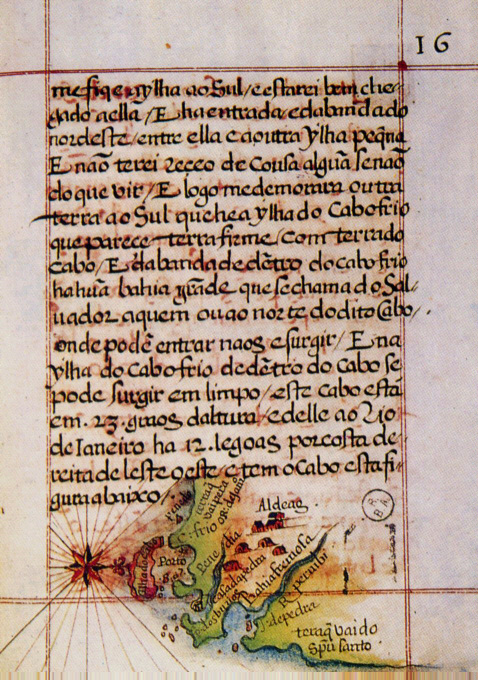 16
me fiqe ylha ao Sul/e estarei bem che-
gado a ella/E ha entrada, e da banda do
nordeste, entre ella e a outra ylha peqna
E não terei receo de Cousa algũa senão
do que vir/E logo me demorara outra
terra ao Sul que he a ylha do Cabo frio
que parece terra firme, com terra do
Cabo/E da banda de dẽtro do cabo frio
ha hũa bahia grãde que se chama do Sal-
uador a quem ou ao norte do dito Cabo/
onde podẽ entrar naos e surgir/E na
ylha do Cabo frio de dẽtro do Cabo se
pode surgir em limpo/este cabo está
em .23. graos daltura/e delle ao Rio
de Ianeiro ha 12. legoas por costa de-
reita de leste oeste, e tem o Cabo esta fi-
gura abaixo/
Aldeas
Porto
Bahia fermosa
Jᵃ. de pedra
terra q̃ vai do
Spũ santo